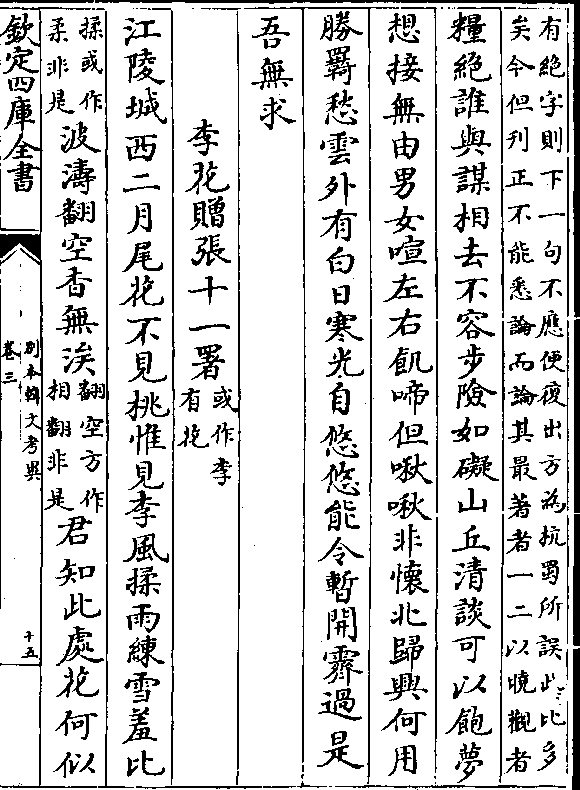 有絶字則下一句不應便複出方為杭蜀所誤此比多
矣今但刊正不能悉論而論其最著者一二以曉觀者
糧絶誰與謀相去不容步險如礙山丘清談可以飽夢
想接無由男女喧左右飢啼但啾啾非懷北歸興何用
勝羇愁雲外有白日寒光自悠悠能令暫開霽過是
吾無求
李花贈張十一署
或作李
有花
江陵城西二月尾花不見桃惟見李風揉雨練雪羞比
揉或作
柔非是
波濤翻空杳無涘
翻空方作
相翻非是
君知此處花何似
欽定四庫全書
别本韓文考異
卷三
十五